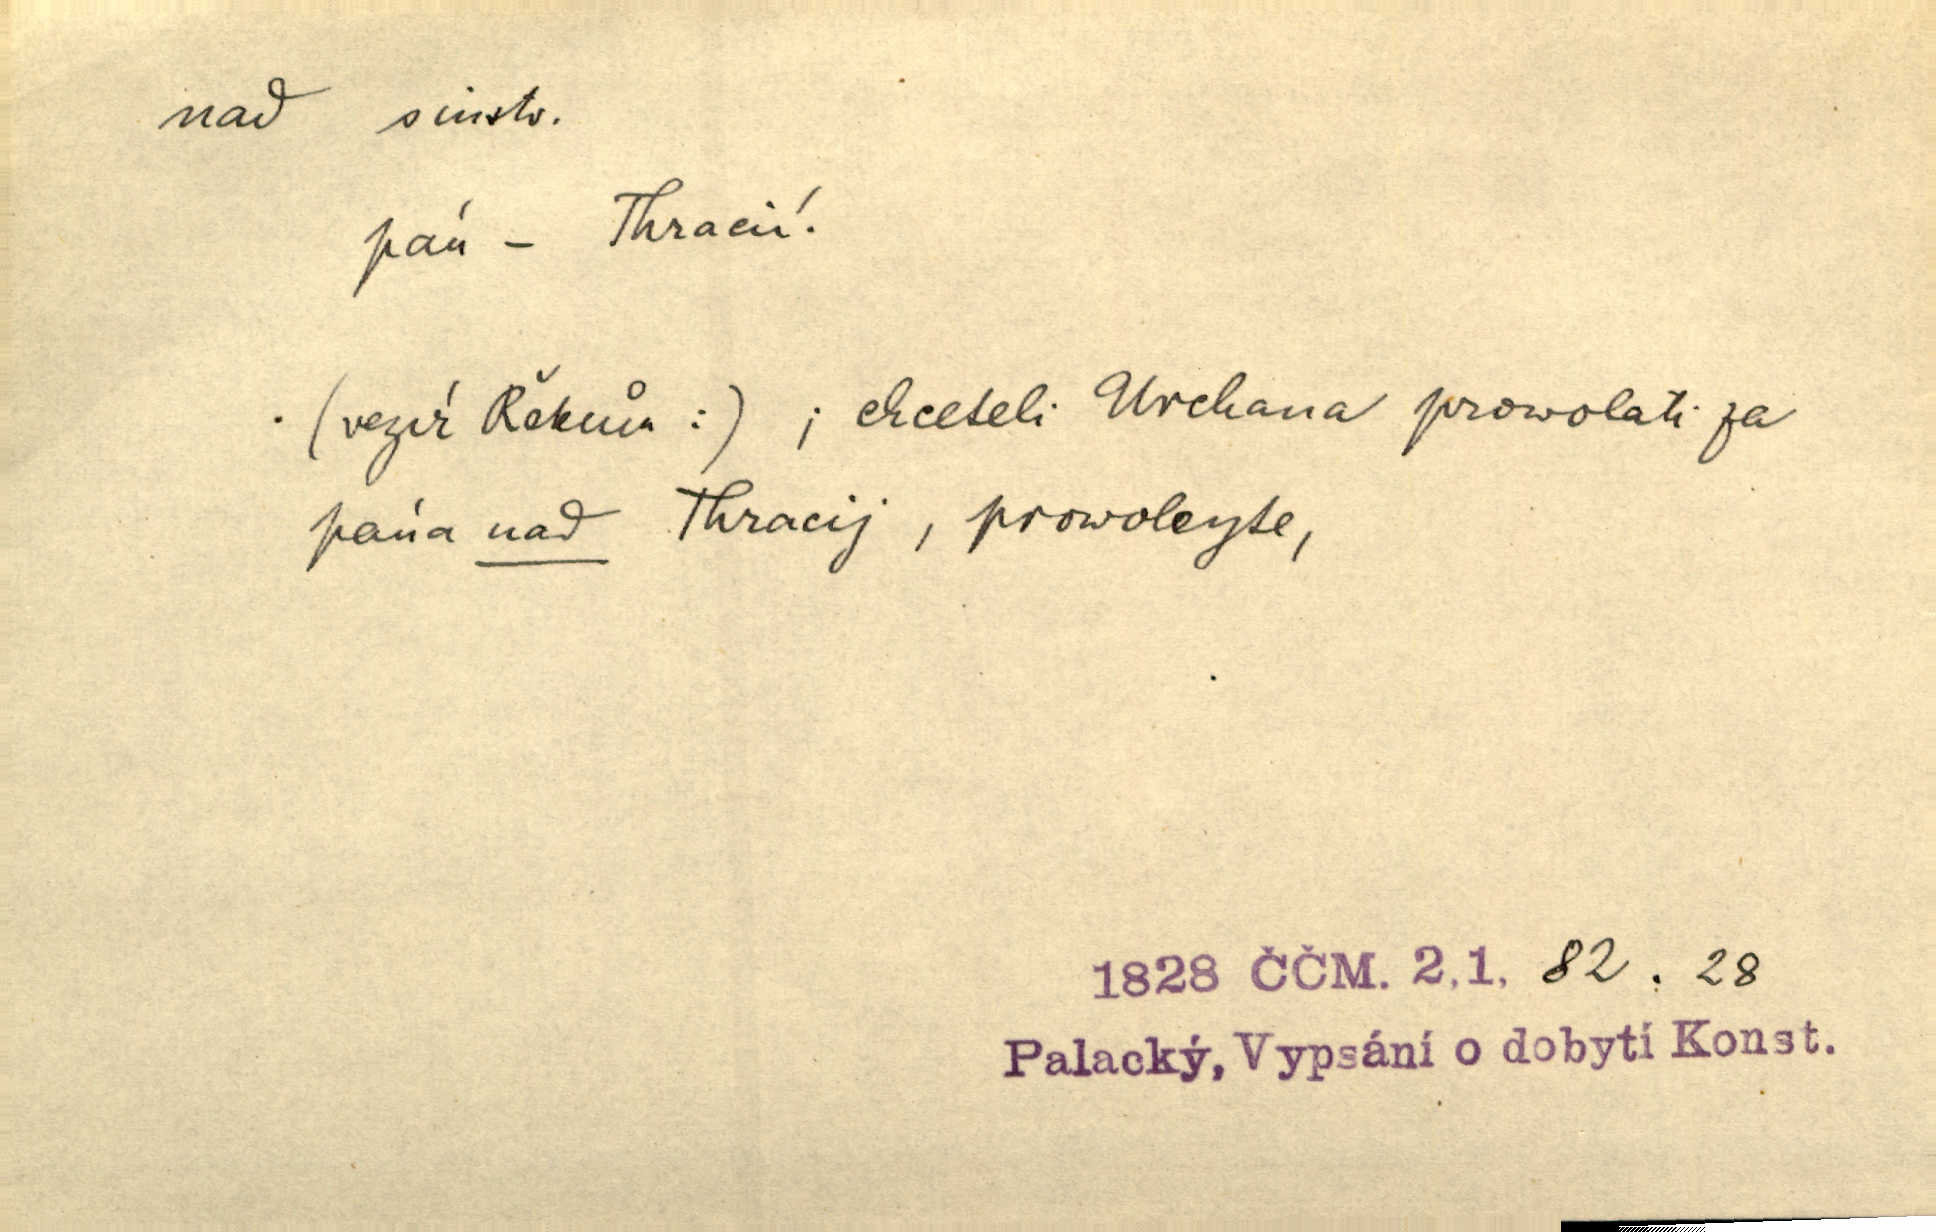 nad sinstr.
pán – Thracií.
(vezír Řekům :) ; chceteli Urchana prowolati za
pána nad Thracij , prowoleyte,
1828 ČČM. 2,1, 82 . 28
Palacký, Vypsání o dobytí Konst.